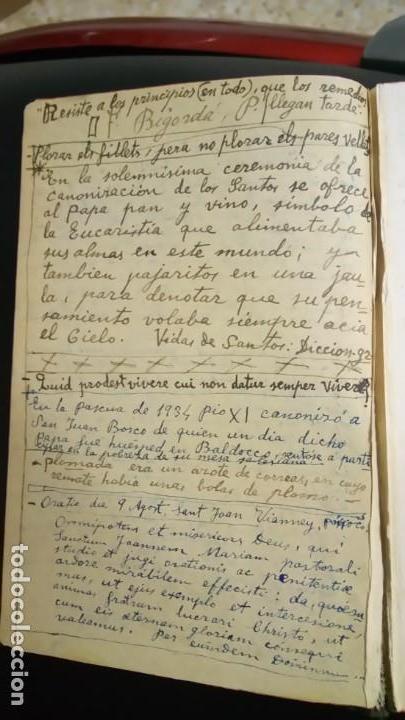 "Resiste a los principios (en todo), que los remedios
F. Bigordá, P. llegan tarde".
- Plorar els fillets, pera no plorar els pares vells
* En la solemnísima ceremonia de la
canonización de los Santos se ofrece
al Papa pan y vino, símbolo de
la Eucaristía que alimentaba
sus almas en este mundo; y
tambien pajaritos en una jau-
la, para denotar que su pen-
samiento volaba siempre acia
el Cielo. Vidas de Santos: Diccion. gr
- Quid prodest vivere cui non datur semper vivere?
En la pascua de 1934 Pio XI canonizó a
San Juan Bosco de quien un día dicho
Papa fue huésped en Baldocco, sentose a parte
en la pobreza de su mesa salesiana
- plomada era un azote de correas, en cuyo
remate había unas bolas de plomo. -
- Oratio die 9 Agost, Sant Joan Vianney,
Omnipotens et misericors Deus, qui
Sanctum Joannem Mariam pastorali
studio et jugi orationis ac penitentiæ
ardore mirabilem effecisti: da, quæsu-
mus, ut ejus exemplo et intercessione,
animas fratrum lucrari Christo, ut
cum eis æternam gloriam consequi
valeamus. Per eumdem Dominum
todocoleccion